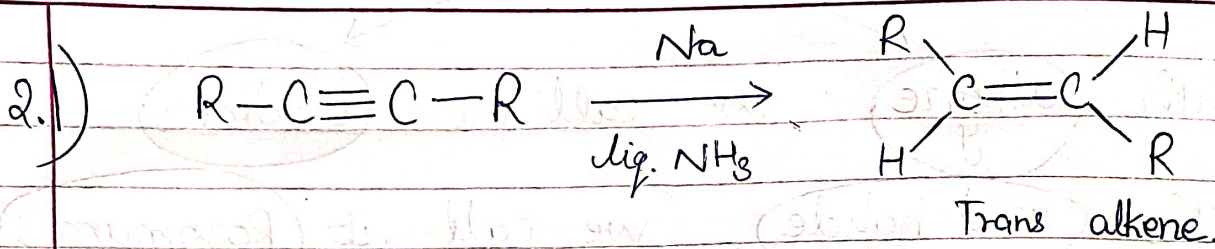 2.) R-C≡C-R Na liq. NH3 → R H C=C H R
Trans alkene.